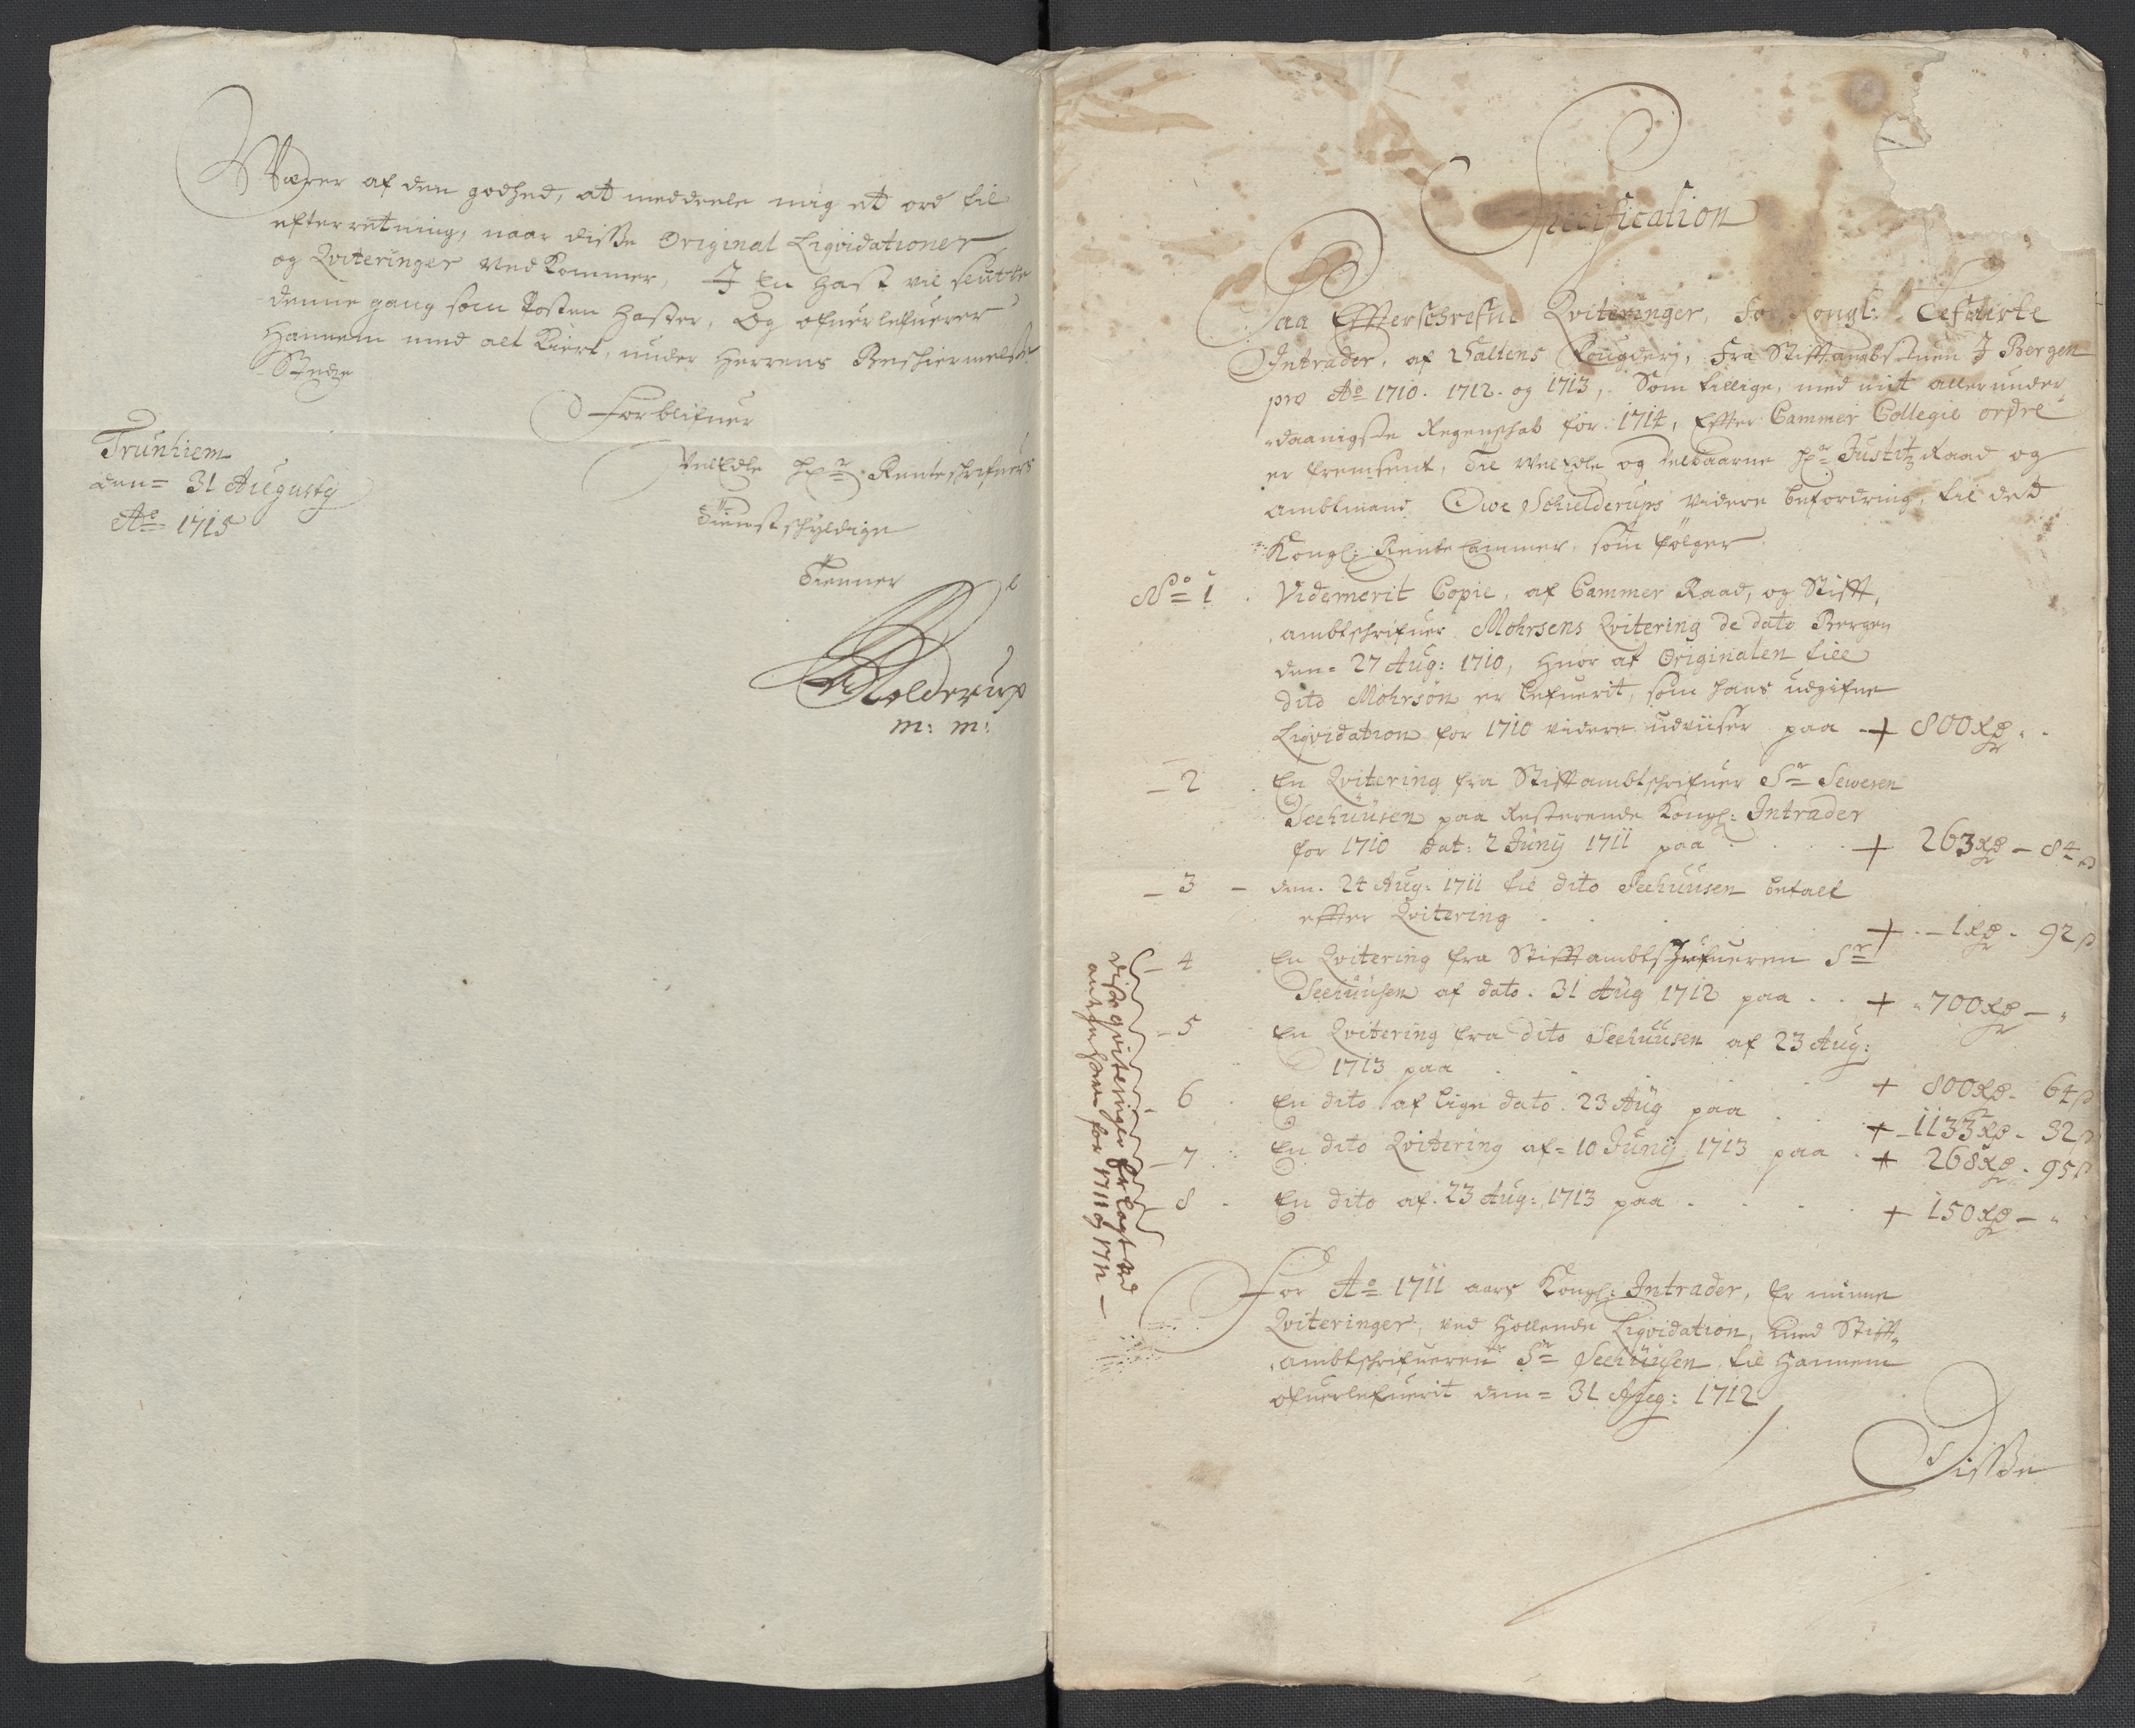 Værer af den godhed, at meddeele mig et ord til
efterretning, naar disse Original Liqvidationer
og Qviteringer Vedkommer, I En hast vil slutte
denne gang som Posten haster, Og ofuerlefuerer
Hannem med alt Kiert, under Herrens Beschiermelse
Stedze
Forblifuer
VelEdle Hr: Renteschrifuers
Tienstschyldige
Tienner
Trunhiem
den= 31 Augusty
Ao= 1715
Schielderup
m: m:
Specification
Paa Effterschrefne Qviteringer, for Kongl: Lefuerte
Intrader, af Saltens Fougderj, Fra Stifftambtstuen I Bergen
pro Ao 1710. 1712. og 1713, Som tillige, med mit allerunder-
daanigste Regenschab for 1714, Effter Cammer Collegie ordre
er fremsent, Til WelEdle og Velbaarne Hr Justitz Raad og
Ambtmand Owe Schielderups Videre befordring, til det
Kongl: Rente Cammer, som følger
No= 1 Videmerit Copie, af Cammer Raad, og Stifft,
ambtschrifuer Mohrsens Qvitering de dato Bergen
den= 27 Aug: 1710, huor af Originalen till
dito Mohrson er lefuerit, som hans udgifne
Liqvidation for 1710 videre udviiser paa + 800 Rdr
2 En Qvitering fra Stifftambtschrifuer Sr Seweren
Seehuusen paa Resterende Kongl: Intrader
for 1710 dat: 2 Junij 1711 paa + 263 Rdr - 84 s
3 - den. 24 Aug: 1711 til dito Seehuusen betalt
effter Qvitering + 1 Rdr - 92 s
4 En Qvitering fra Stifftambtschrifueren Sr
Seehuusen af dato. 31 Aug 1712 paa + 700 Rdr -
5 En Qvitering fra dito Seehuusen af 23 Aug:
1713 paa + 800 Rdr - 64 s
6 En dito af lige dato. 23 Aug paa + 1133 Rdr - 32 s
7 En dito Qvitering af= 10 Junij 1713 paa + 268 Rdr - 95 s
8 En dito af. 23 Aug: 1713 paa + 150 Rdr -
disse qviteringer er lagt ved
for 1711 og 1712 -
For Ao= 1711 aars Kongl: Intrader, Er minne
Qviteringer, ved Hollende Liqvidation, med Stifft-
ambtschrifueren Sr Seehuusen til Hannem
ofuerlefuerit den= 31 Aug: 1712
Disse